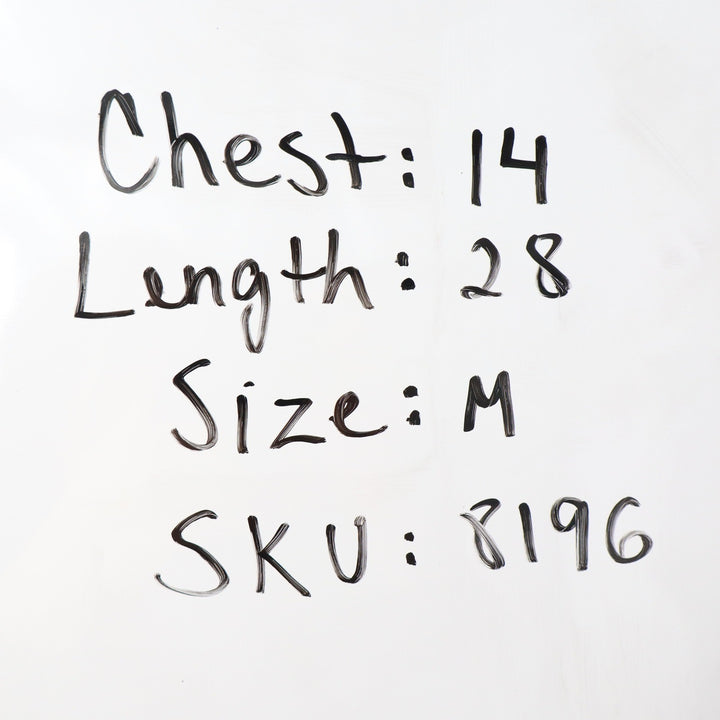 Chest: 14
Length: 28
Size: M
SKU: 8196